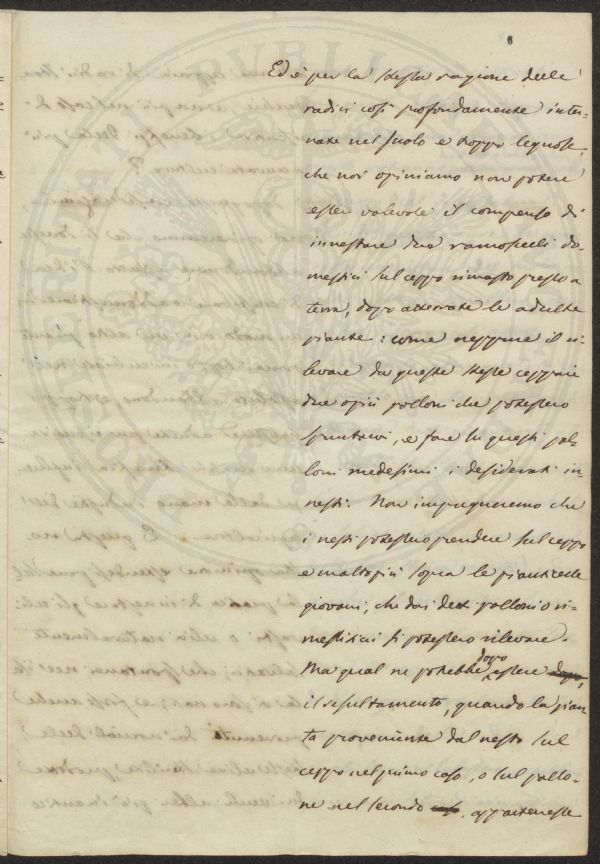 8
Ed è per la stessa ragione delle
radici così profondamente inter-
nate nel suolo e troppo legnose,
che noi opiniamo non potere
esser valevole il compenso di
innestare due ramoscelli do-
mestici sul ceppo rimasto presso a
terra, dopo atterrate le adulte
piante: come neppure il ri-
levare da queste stesse ceppaie
due o più polloni che potessero
spuntarvi, e fare su questi pol-
loni medesimi i desiderati in-
nesti. Non impugneremo che
i nesti potessero prendere sul ceppo
e molto più sopra le pianticelle
giovani, che dai detti polloni o ri-
messiticci si potessero rilevare.
Ma qual ne potrebbe dopo essere
il resultamento, quando la pian-
ta proveniente dal nesto sul
ceppo nel primo caso, o sul pollo-
ne nel secondo, appartenesse